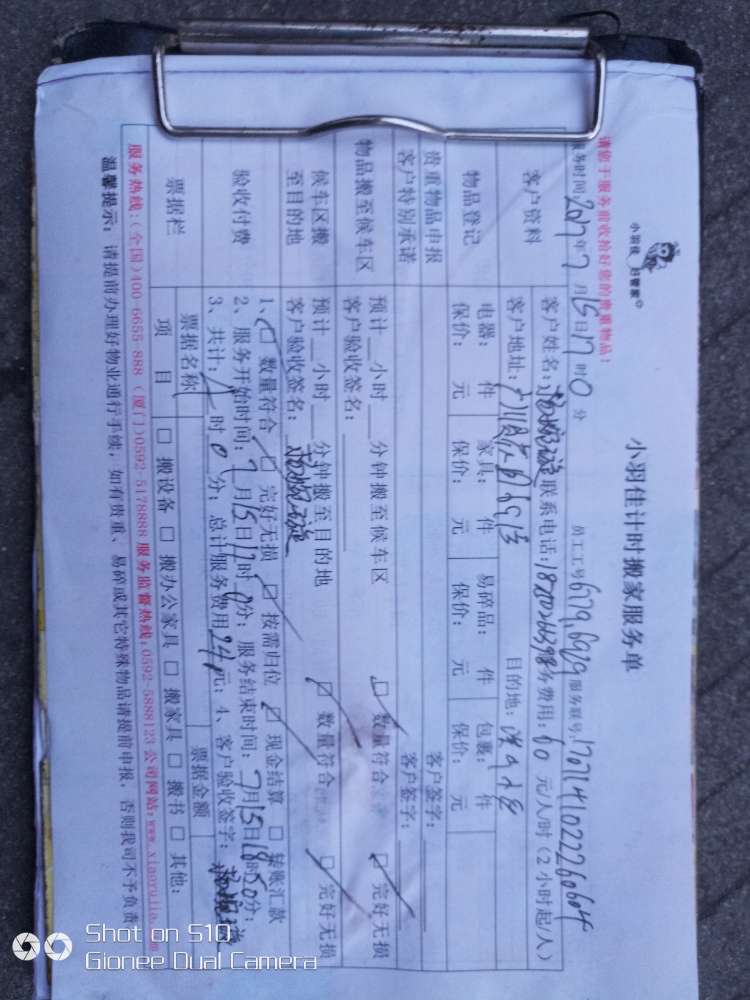 小羽佳 好管家
小羽佳计时搬家服务单
请您于服务前收拾好您的贵重物品：
服务时间 2017年7月15日17时0分 员工工号 679,6929 服务联号:
客户资料
客户姓名: 联系电话: 服务费用: 60 元/人/时(2小时起/人)
客户地址: 目的地:
物品登记
电器: 件 家具: 件 易碎品: 件 包裹: 件
保价: 元 保价: 元 保价: 元 保价: 元
贵重物品申报 客户签字:
客户特别承诺 客户签字:
物品搬至候车区
预计__小时__分钟搬至候车区 □ 数量符合 □ 完好无损
客户验收签名:
候车区搬至目的地
预计__小时__分钟搬至目的地 □ 数量符合 □ 完好无损
客户验收签名:
验收付费
1、□ 数量符合 □ 完好无损 □ 按需归位 □ 现金结算 □ 转账汇款
2、服务开始时间: 7月15日17时0分; 服务结束时间: 7月15日18时50分;
3、共计: 时0分; 总计服务费用240元; 4、客户验收签字:
票据栏
票据名称 票据金额
项目 □ 搬设备 □ 搬办公家具 □ 搬家具 □ 搬书 □ 其他:
服务热线:(全国)400-6655-888 (厦门)0592-5178888 服务监督热线:0592-5888123 公司网站:www.xiaoyujia.com
温馨提示: 请提前办理好物业通行手续, 如有贵重、易碎或其它特殊物品请提前申报, 否则我司不予负责
Shot on S10
Gionee Dual Camera